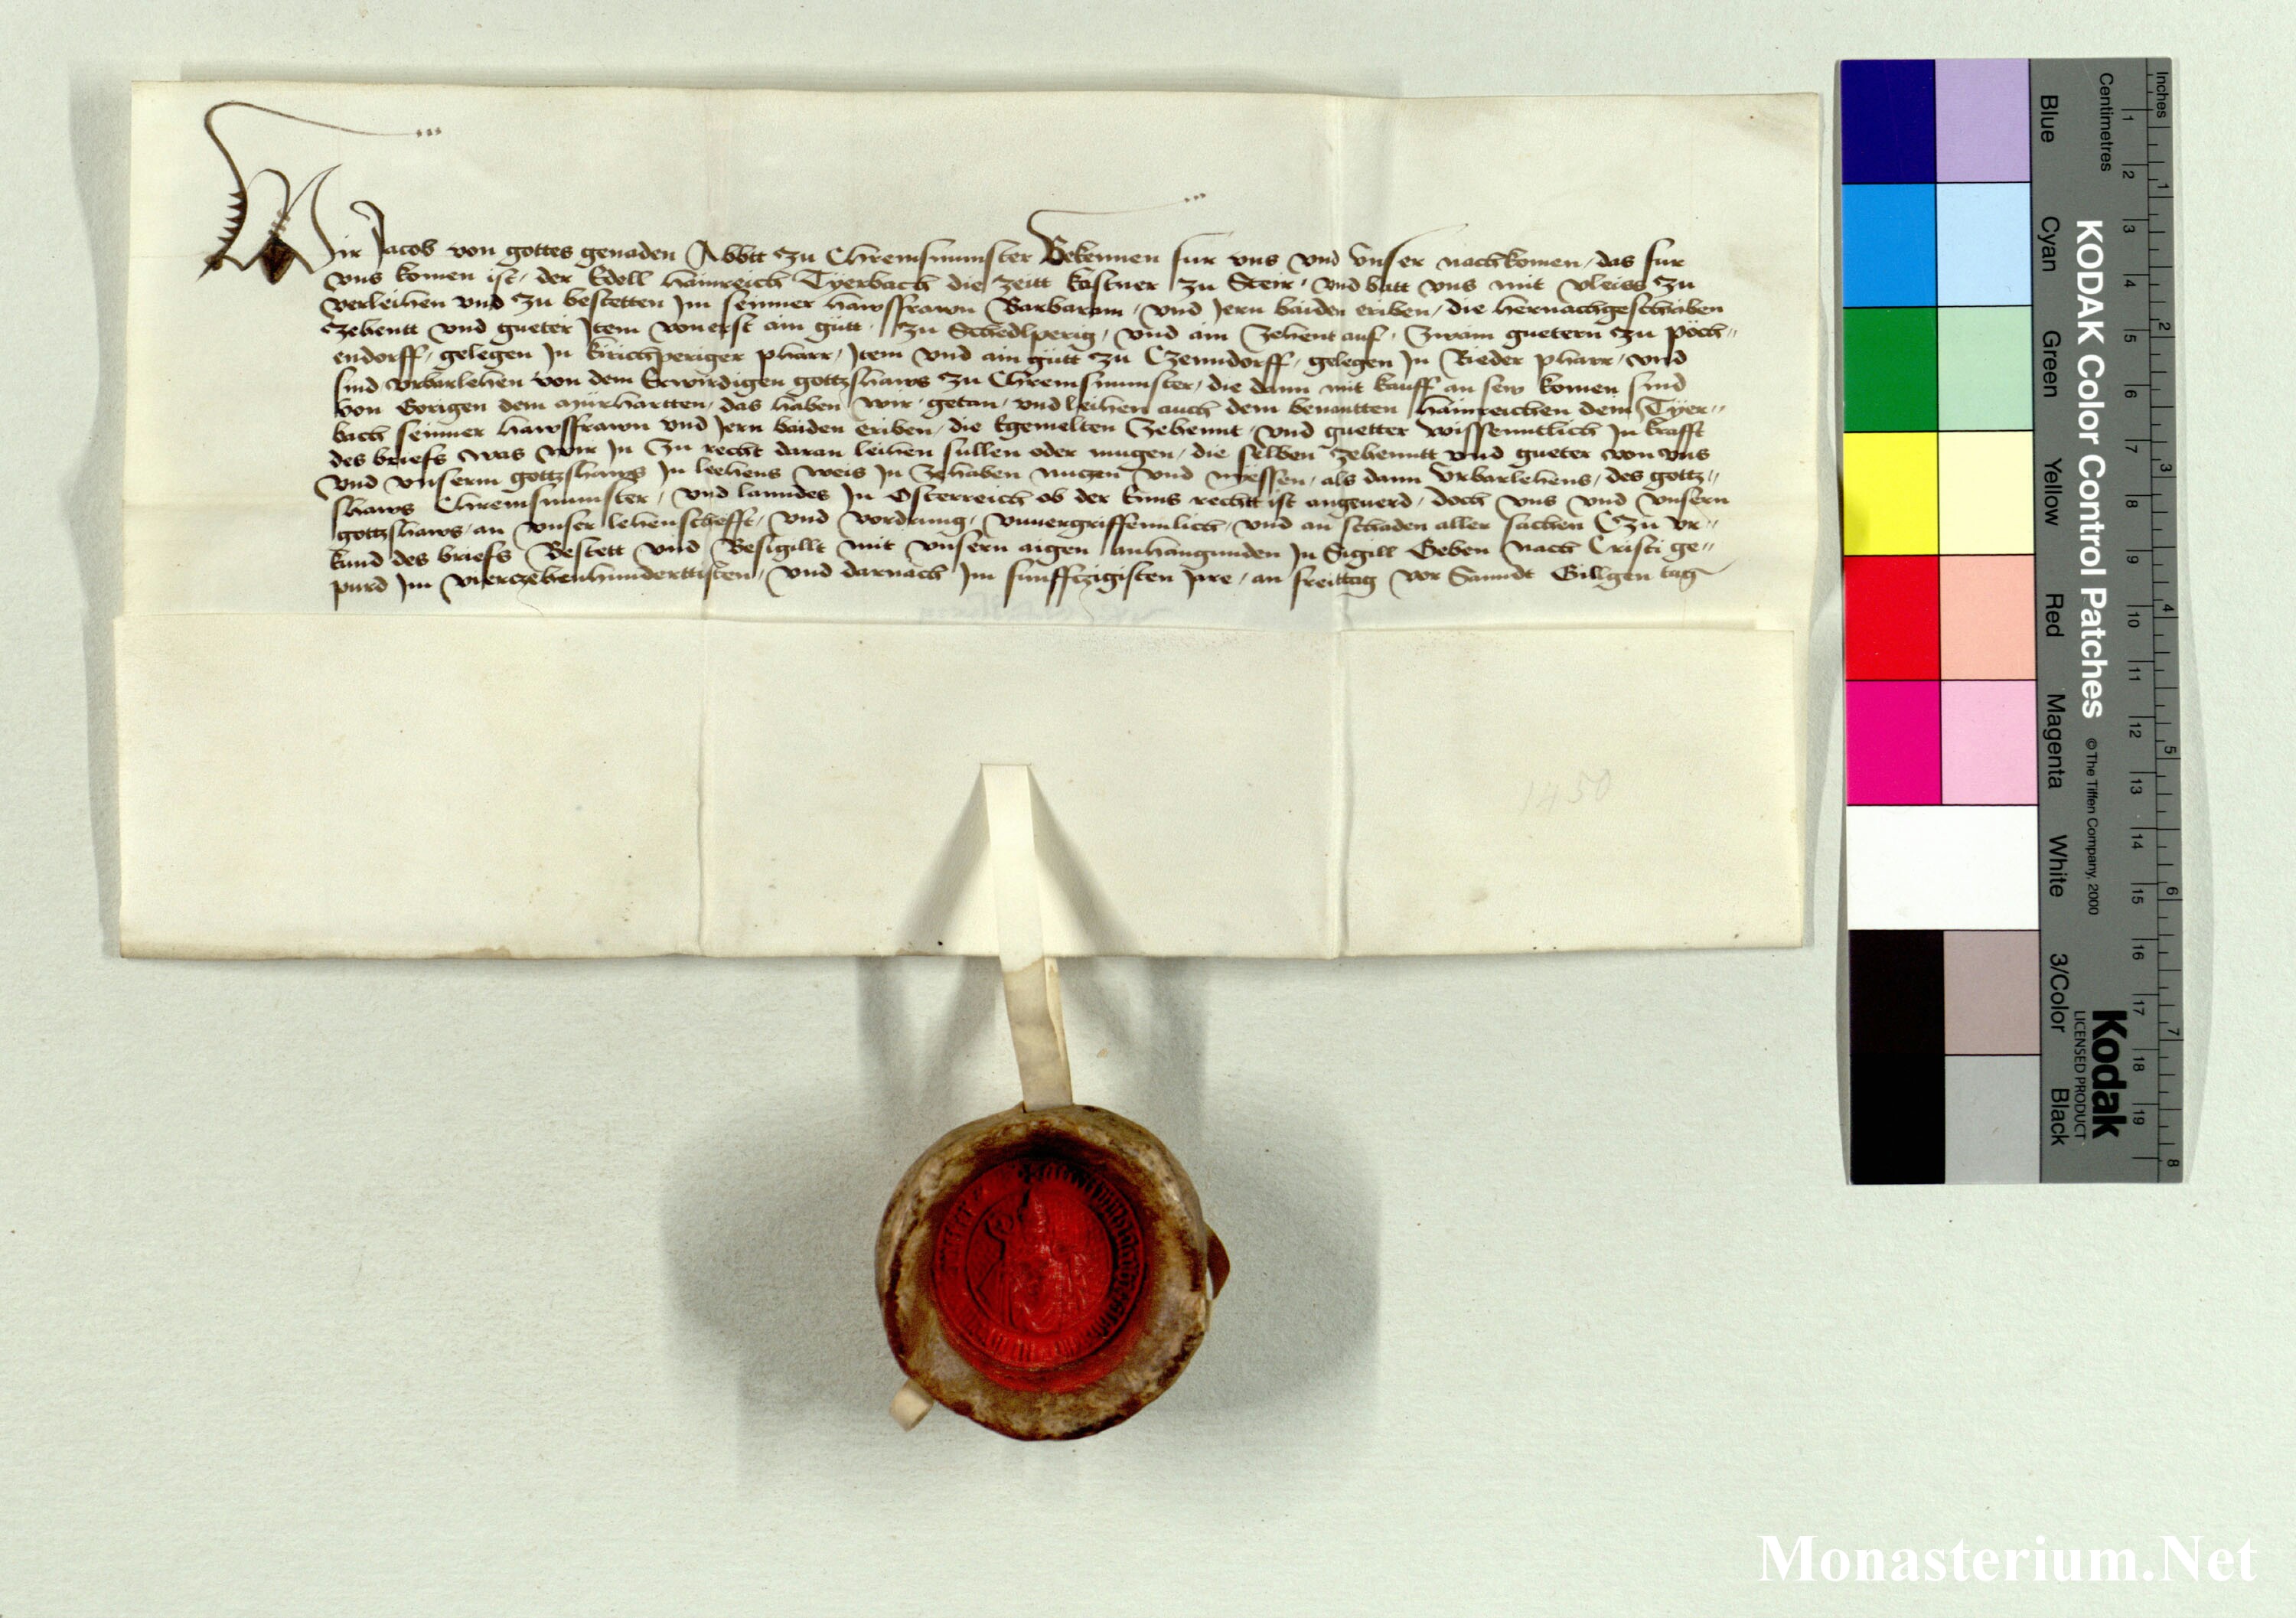 Wir Jacob von gottes genaden Abbtt zu Chremsmunster Bekennen fur vns vnd vnser nachkomen, das fur
vns komen ist, der Edell Hainreich Tyerbach die zeitt kastner zu Steir, vnd batt vns mit vleiss zu
verleihen vnd zu bestetten Im seinner hawsffrawn Barbaram, vnd Jern baiden eriben, die hernachgeschriben
zehentt vnd gueter Item von erst ain gutt, zu Schedlperig, vnd ain zehent auf, zwain guetern zu Poch„
endorff, gelegen In kirichperiger pharr, Item vnd ain gutt zu Czenndorff, gelegen In Rieder pharr, vnd
sind vrbarlehen von dem Erwirdigen gottzshaws zu Chremsmunster, die dann mit kauff an sew komen sind
von Gorigen dem, das haben wir getan, vnd leihen auch dem benantten Hainreichen dem Tyer„
bach seinner hawsffrawn vnd Jern baiden eriben, die Egemelten zehennt, vnd guetter wissenntlich In krafft
des briefs was wir In zu recht daran leihen sullen oder mugen, die selben zehenntt vnd gueter von vns
vnd vnserm gottzshaws In leehens weis In zehaben nuczen vnd niessen, als dann vrbarlehens, des gottz„
shaws Chremsmunster, vnd lanndes In Osterreich ob der Enns recht ist angeuerd, doch vns vnd vnserm
gottzshaws, an vnser lehenschefft, vnd vordrung, vnuergriffennlich, vnd an schaden aller sachen Czu vr„
kund des briefs Bestett vnd Besigillt mit vnserm aigen anhangunden In Sigill Geben nach Cristi ge„
purd Im vierczehenhunderttisten, vnd darnach Im funffczigisten Jare, an freittag vor Sanndt Gillgen tag
1450
Inches
Centimetres
KODAK Color Control Patches
© The Tiffen Company, 2000
Kodak
LICENSED PRODUCT
Blue Cyan Green Yellow Red Magenta White 3/Color Black
1 2 3 4 5 6 7 8 9 10 11 12 13 14 15 16 17 18 19
1 2 3 4 5 6 7 8
Monasterium.Net